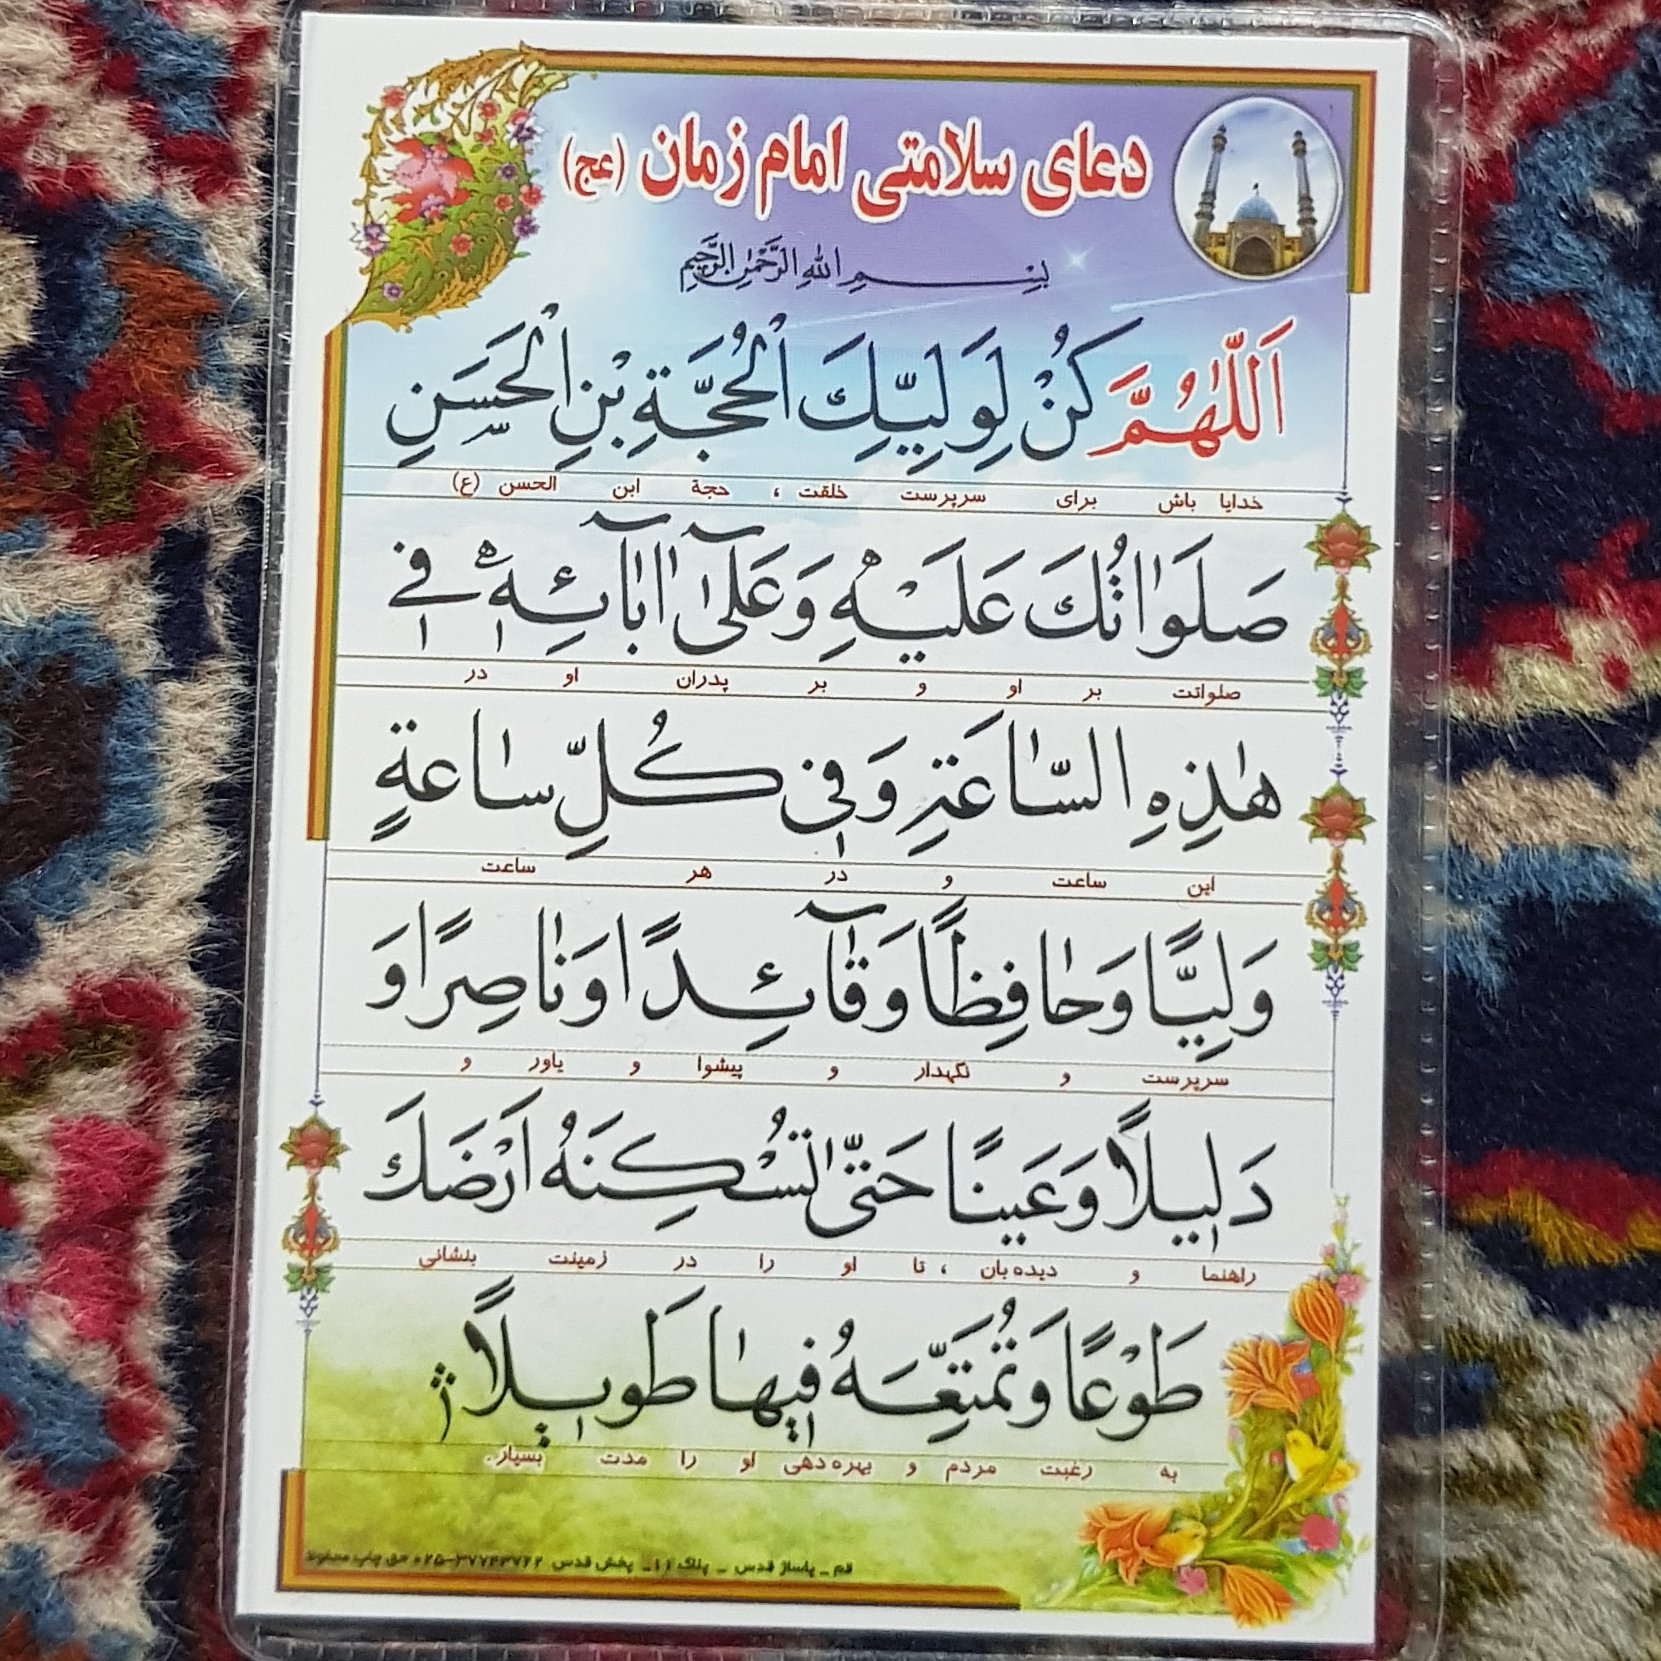 دعای سلامتی امام زمان (عج)
بِسْمِ اللهِ الرَّحْمٰنِ الرَّحِيمِ
اَللّٰهُمَّ كُنْ لِوَلِيِّكَ الْحُجَّةِ بْنِ الْحَسَنِ
خدایا باش برای سرپرست خلقت ، حجة ابن الحسن (ع)
صَلَوٰاتُكَ عَلَيْهِ وَعَلىٰٓ اٰبٰآئِهٖ فٖي
صلواتت بر او و بر پدران او در
هٰذِهِ السّٰاعَةِ وَفٖي كُلِّ سٰاعَةٍ
این ساعت و در هر ساعت
وَلِيًّا وَحٰافِظًا وَقٰآئِدًا وَنٰاصِرًا وَ
سرپرست و نگهدار و پیشوا و یاور و
دَلٖيلًا وَعَيْنًا حَتّىٰ تُسْكِنَهُ اَرْضَكَ
راهنما و دیده بان ، تا او را در زمینت بنشانی
طَوْعًا وَتُمَتِّعَهُ فٖيهٰا طَوٖيلًا
به رغبت مردم و بهره دهی او را مدت بسیار.
قم ـ پاساژ قدس ـ پلاک ۱۱ـ پخش قدس ۳۷۷۴۳۷۴۲-۰۲۵ حق چاپ محفوظ